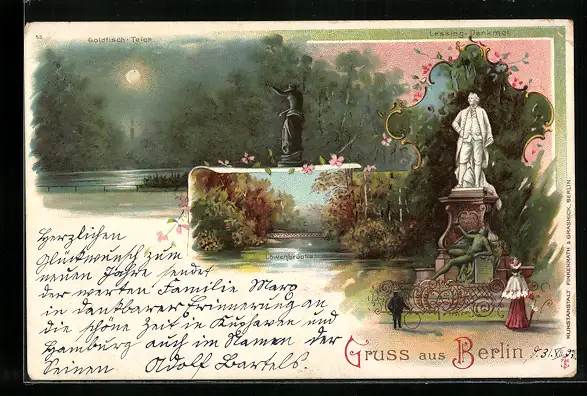 53
Goldfisch-Teich
Lessing-Denkmal
Löwenbrücke
Herzlichen
Glückwunsch zum
neuen Jahre sendet
der werten Familie Marx
in dankbarer Erinnerung an
die schöne Zeit in Kuxhaven und
Hamburg auch im Namen der
Seinen Adolf Bartels.
Gruss aus Berlin
KUNSTANSTALT FINKENRATH & GRASNICK, BERLIN.